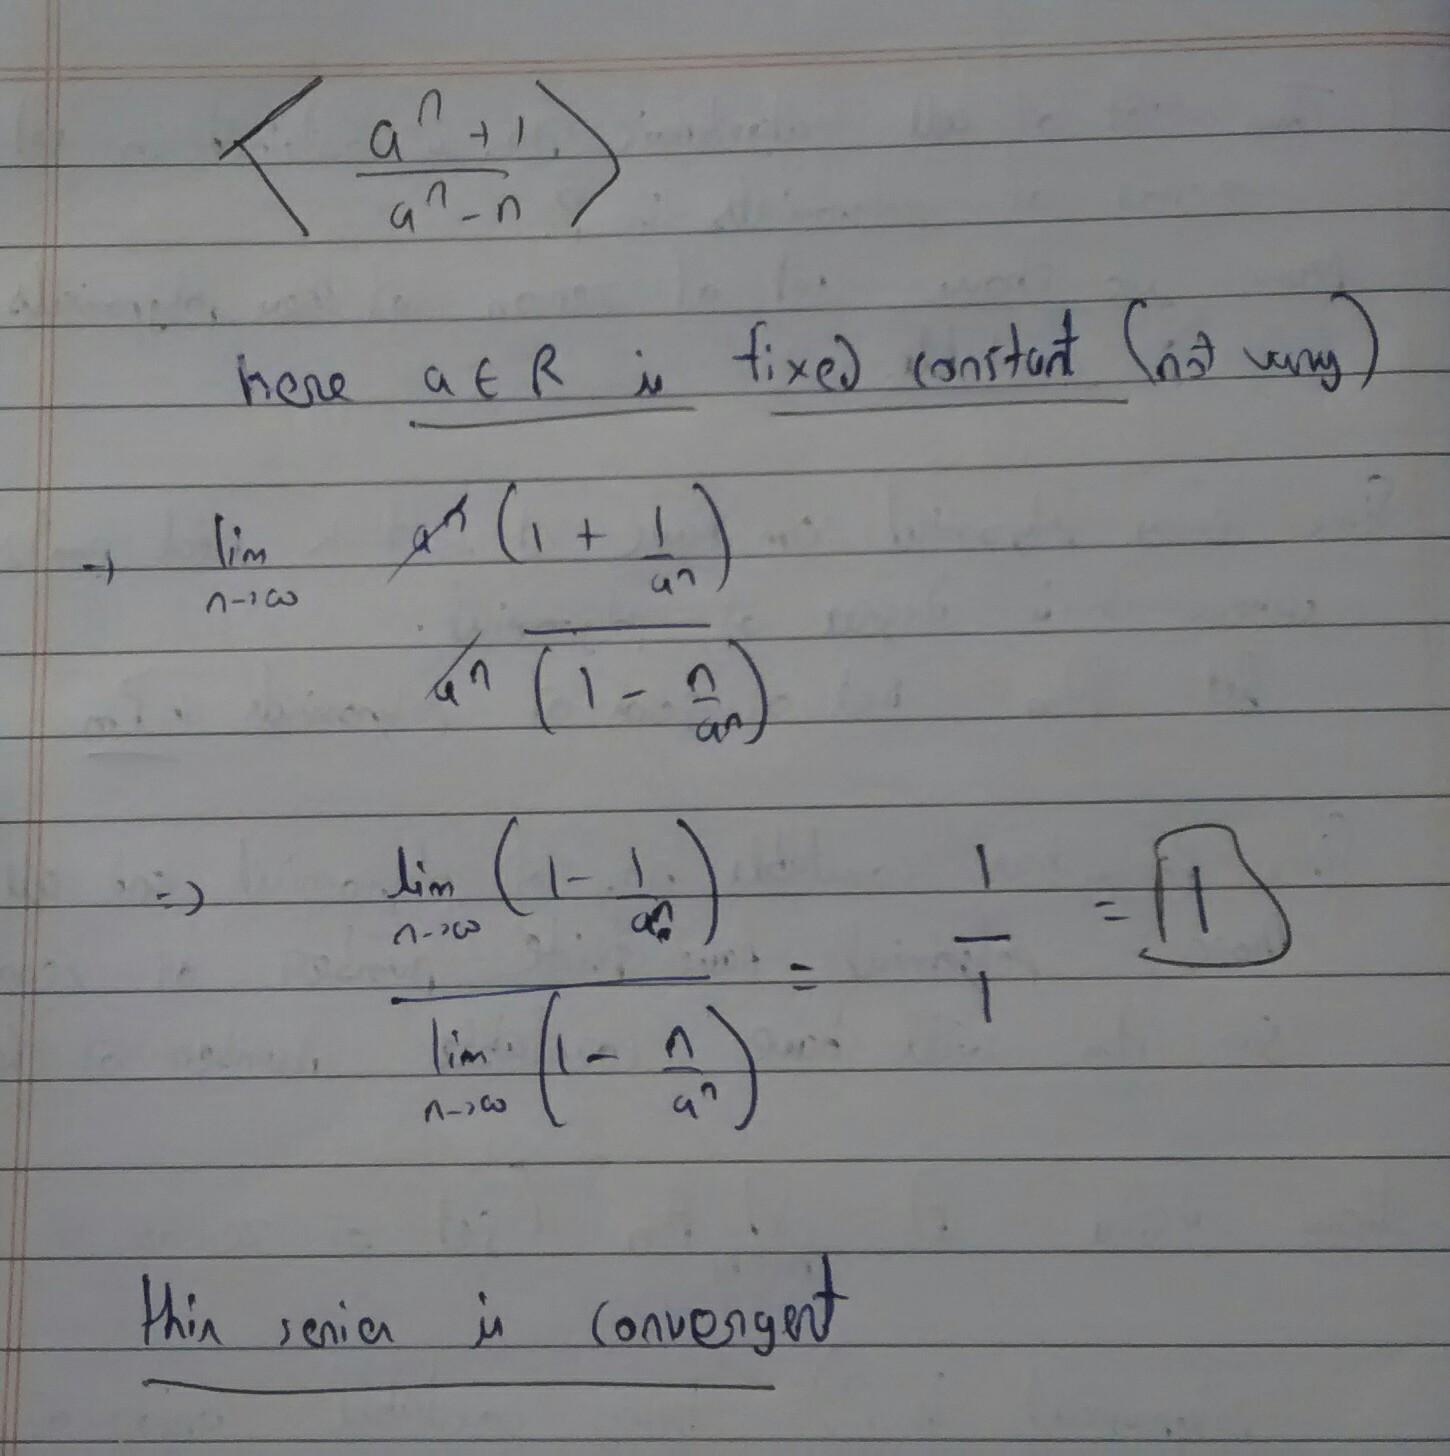 ⟨ (a^n + 1) / (a^n - n) ⟩
here a ∈ R is fixed constant (not vary)
→ lim n→∞ a^n (1 + 1/a^n) / a^n (1 - n/a^n)
=> lim n→∞ (1 - 1/a^n) / lim n→∞ (1 - n/a^n) = 1/1 = 1
this series is convergent